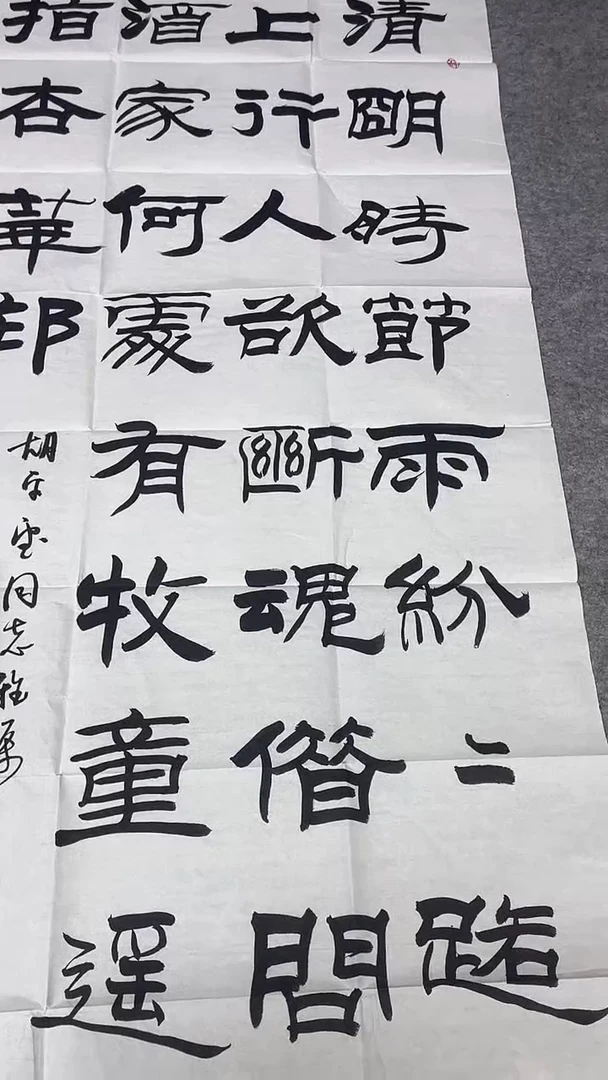 清朙時節雨紛〻路
上行人欲斷魂借問
酒家何處有牧童遥
指杏華邨
同志雅属